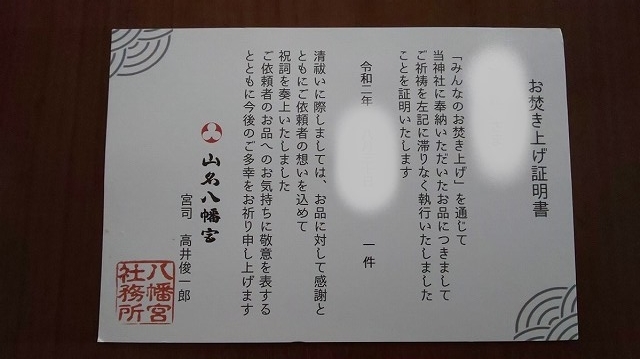 お焚き上げ証明書
「みんなのお焚き上げ」を通じて
当神社に奉納いただいたお品につきまして
ご祈祷を左記に滞りなく執行いたしました
ことを証明いたします
令和二年
一件
清祓いに際しましては、お品に対して感謝と
ともにご依頼者の想いを込めて
祝詞を奏上いたしました
ご依頼者のお品へのお気持ちに敬意を表する
とともに今後のご多幸をお祈り申し上げます
山名八幡宮
宮司 高井俊一郎
八幡宮
社務所